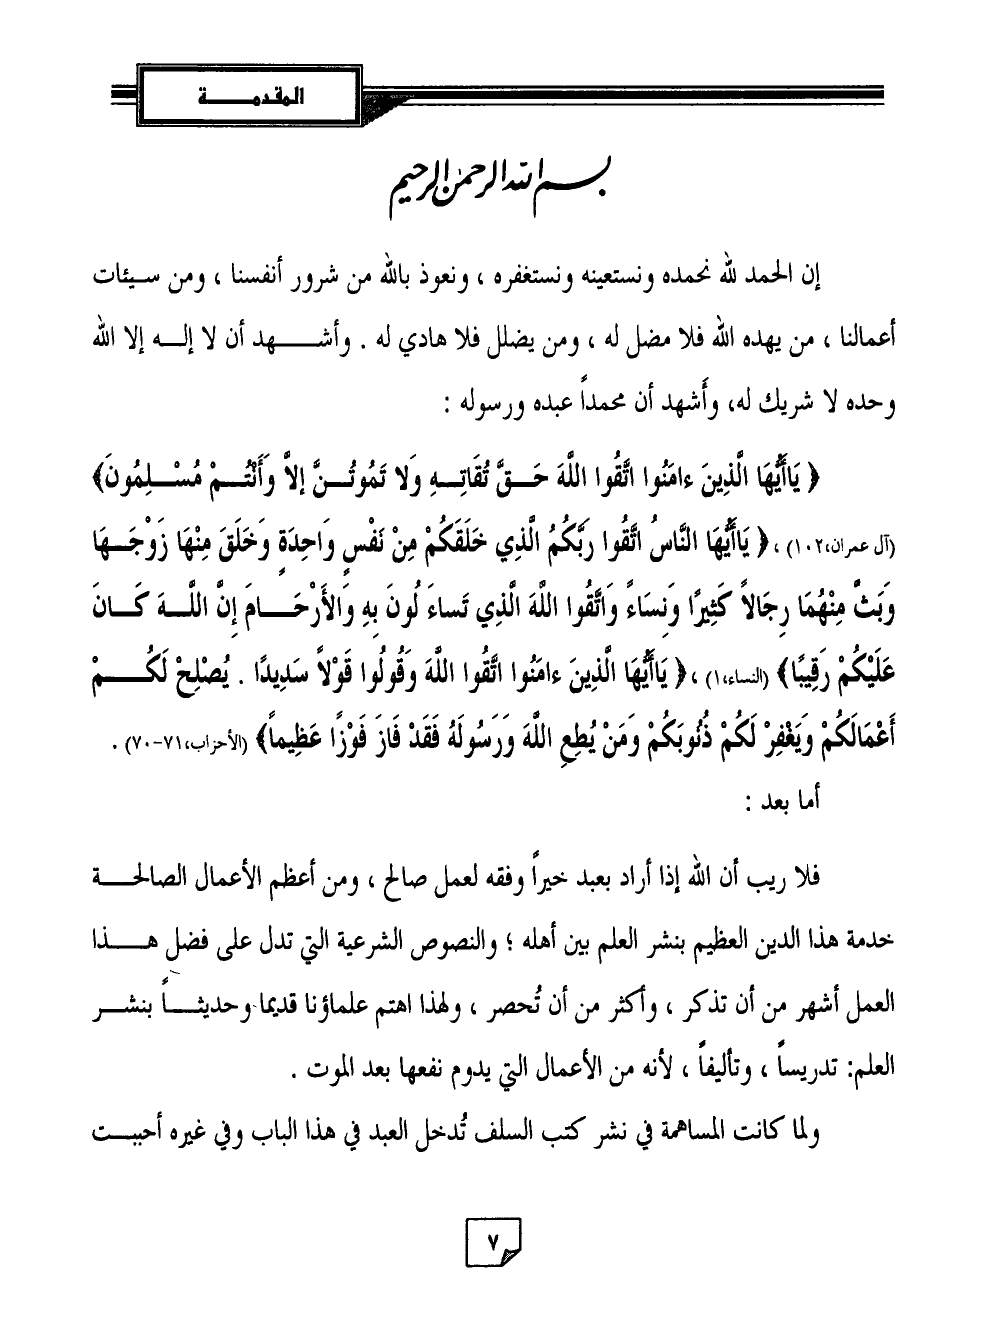 المقدمـــــة
بسم الله الرحمن الرحيم
إن الحمد لله نحمده ونستعينه ونستغفره ، ونعوذ بالله من شرور أنفسنا ، ومن سـيئات
أعمالنا ، من يهده الله فلا مضل له ، ومن يضلل فلا هادي له . وأشـــــهد أن لا إلـــه إلا الله
وحده لا شريك له، وأَشهد أن محمداً عبده ورسوله :
﴿ يَاأَيُّهَا الَّذِينَ ءامَنُوا اتَّقُوا اللَّهَ حَــقَّ تُقَاتِــهِ وَلا تَمُوتُــنَّ إلاَّ وَأَنْتُــمْ مُسْــلِمُونَ﴾
(آل عمران،١٠٢) ،﴿ يَاأَيُّهَا النَّاسُ اتَّقُوا رَبَّكُمُ الَّذِي خَلَقَكُمْ مِنْ نَفْسٍ وَاحِدَةٍ وَخَلَقَ مِنْهَا زَوْجَـــهَا
وَبَثَّ مِنْهُمَا رِجَالاً كَثِيرًا وَنِسَاءً وَاتَّقُوا اللَّهَ الَّذِي تَساءَ لُونَ بِهِ وَالأَرْحَـــامَ إِنَّ اللَّـــهَ كَـــانَ
عَلَيْكُمْ رَقِيبًا﴾ (النساء،١) ،﴿ يَاأَيُّهَا الَّذِينَ ءامَنُوا اتَّقُوا اللَّهَ وَقُولُوا قَوْلاً سَدِيدًا . يُصْلِحْ لَكُـــــمْ
أَعْمَالَكُمْ وَيَغْفِرْ لَكُمْ ذُنُوبَكُمْ وَمَنْ يُطِعِ اللَّهَ وَرَسُولَهُ فَقَدْ فَازَ فَوْزًا عَظِيماً﴾ (الأحزاب،٧١-٧٠) .
أما بعد :
فلا ريب أن الله إذا أراد بعبد خيراً وفقه لعمل صالح ، ومن أعظم الأعمال الصالحـــة
خدمة هذا الدين العظيم بنشر العلم بين أهله ؛ والنصوص الشرعية التي تدل على فضل هـــــذا
العمل أشهر من أن تذكر ، وأكثر من أن تُحصر ، ولهذا اهتم علماؤنا قديما وحديثــــاً بنشــر
العلم: تدريساً ، وتأليفاً ، لأنه من الأعمال التي يدوم نفعها بعد الموت .
ولما كانت المساهمة في نشر كتب السلف تُدخل العبد في هذا الباب وفي غيره أحببــت
٧